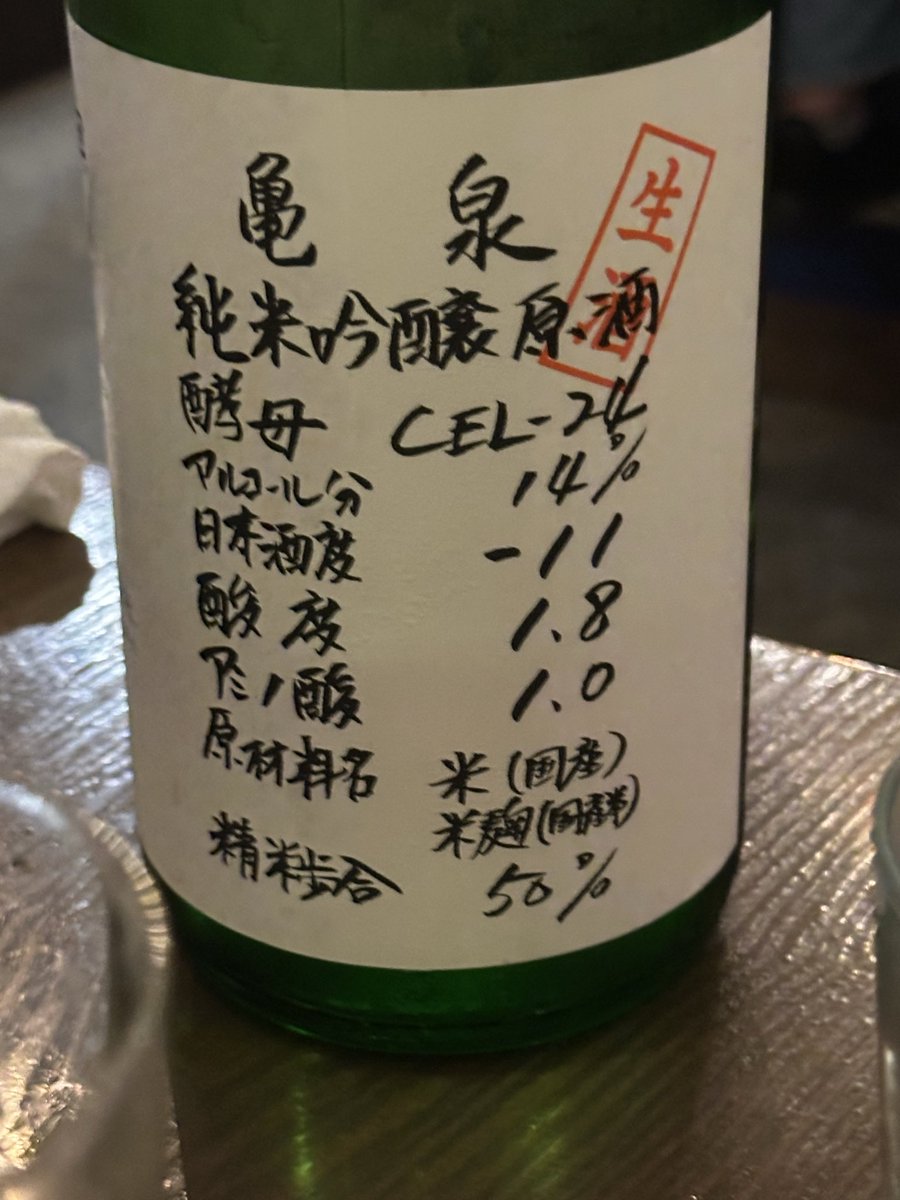 亀泉
生酒
純米吟醸原酒
酵母 CEL-24
アルコール分 14%
日本酒度 -11
酸度 1.8
アミノ酸 1.0
原材料名 米(国産)
米麹(国産米)
精米歩合 50%